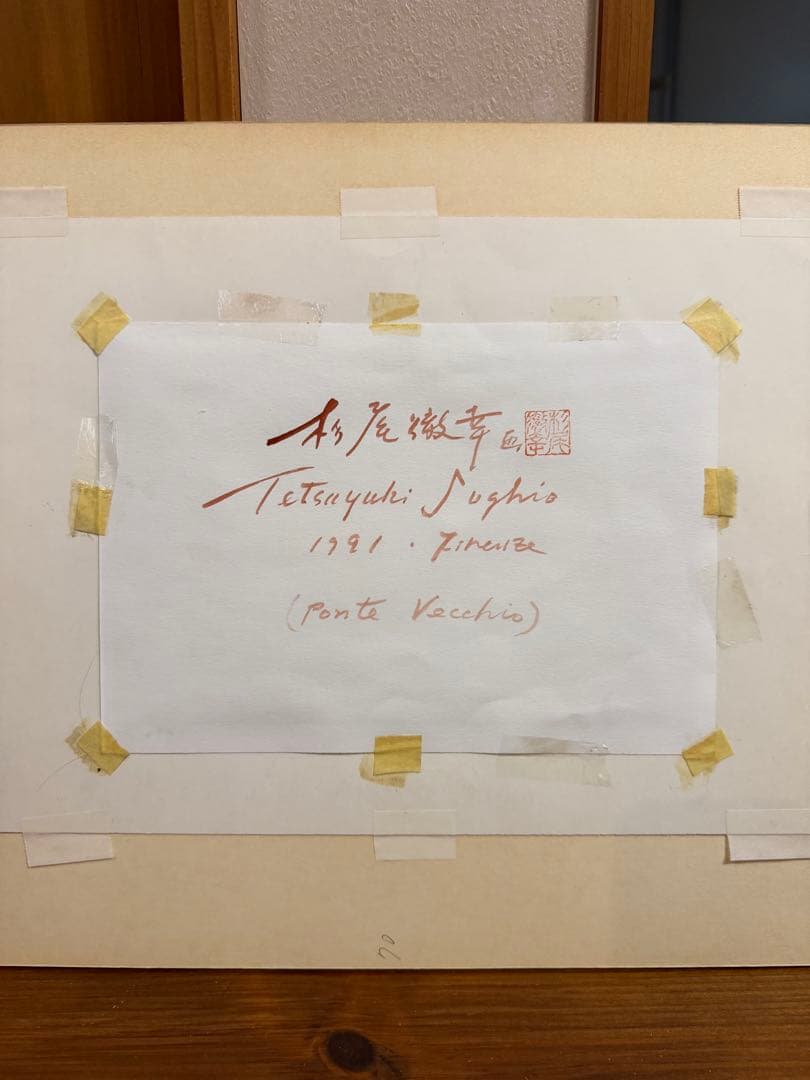 杉尾徹幸画
杉尾徹幸
Tetsuyuki Sughio
1991 . Firenze
(Ponte Vecchio)
70